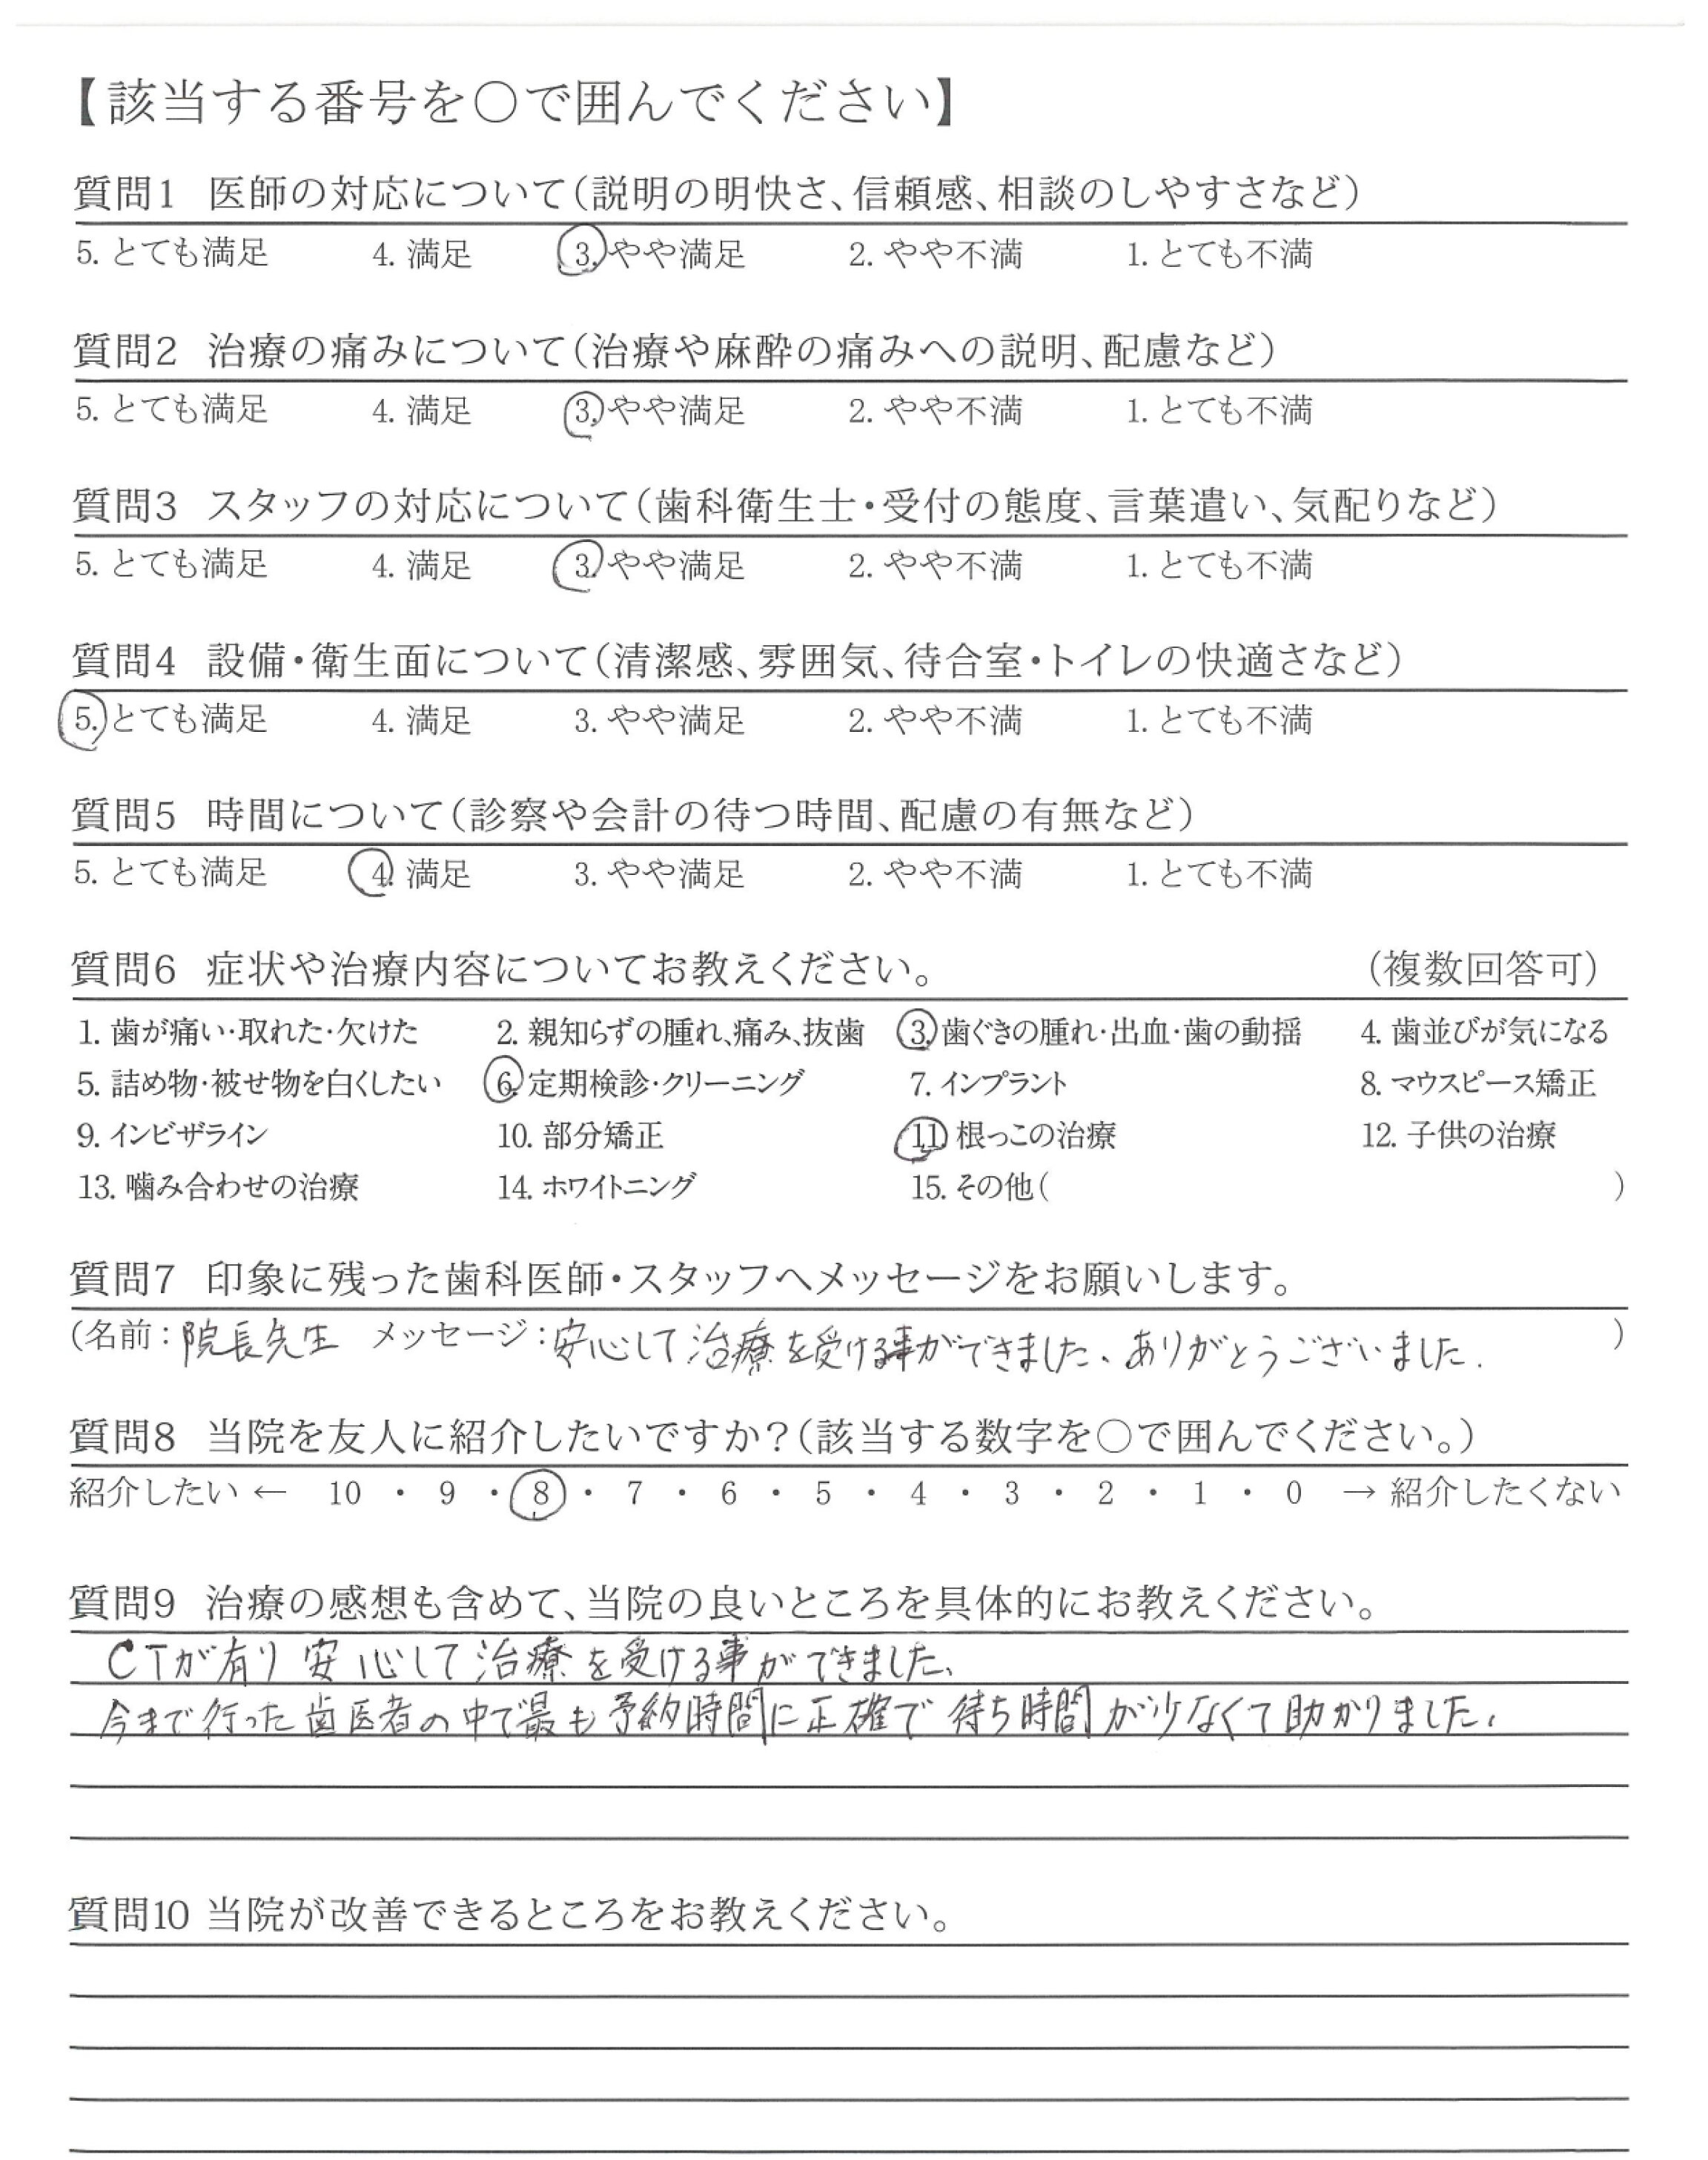 【該当する番号を〇で囲んでください】
質問1 医師の対応について（説明の明快さ、信頼感、相談のしやすさなど）
5. とても満足 4. 満足 3. やや満足 2. やや不満 1. とても不満
質問2 治療の痛みについて（治療や麻酔の痛みへの説明、配慮など）
5. とても満足 4. 満足 3. やや満足 2. やや不満 1. とても不満
質問3 スタッフの対応について（歯科衛生士・受付の態度、言葉遣い、気配りなど）
5. とても満足 4. 満足 3. やや満足 2. やや不満 1. とても不満
質問4 設備・衛生面について（清潔感、雰囲気、待合室・トイレの快適さなど）
5. とても満足 4. 満足 3. やや満足 2. やや不満 1. とても不満
質問5 時間について（診察や会計の待つ時間、配慮の有無など）
5. とても満足 4. 満足 3. やや満足 2. やや不満 1. とても不満
質問6 症状や治療内容についてお教えください。 （複数回答可）
1. 歯が痛い・取れた・欠けた 2. 親知らずの腫れ、痛み、抜歯 3. 歯ぐきの腫れ・出血・歯の動揺 4. 歯並びが気になる
5. 詰め物・被せ物を白くしたい 6. 定期検診・クリーニング 7. インプラント 8. マウスピース矯正
9. インビザライン 10. 部分矯正 11. 根っこの治療 12. 子供の治療
13. 噛み合わせの治療 14. ホワイトニング 15. その他（ ）
質問7 印象に残った歯科医師・スタッフへメッセージをお願いします。
（名前：院長先生 メッセージ：安心して治療を受ける事ができました、ありがとうございました. ）
質問8 当院を友人に紹介したいですか？（該当する数字を〇で囲んでください。）
紹介したい ← 10 ・ 9 ・ 8 ・ 7 ・ 6 ・ 5 ・ 4 ・ 3 ・ 2 ・ 1 ・ 0 → 紹介したくない
質問9 治療の感想も含めて、当院の良いところを具体的にお教えください。
CTが有り安心して治療を受ける事ができました、
今まで行った歯医者の中で最も予約時間に正確で待ち時間が少なくて助かりました、
質問10 当院が改善できるところをお教えください。